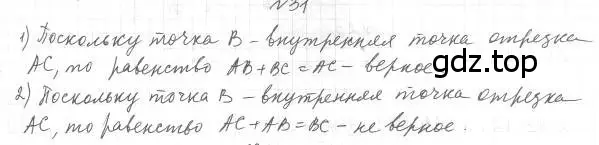 №31
1) Поскольку точка В – внутренняя точка отрезка
АС, то равенство АВ+ВС=АС – верное
gdz.top
2) Поскольку точка В – внутренняя точка отрезка
АС, то равенство АС+АВ=ВС – не верное.